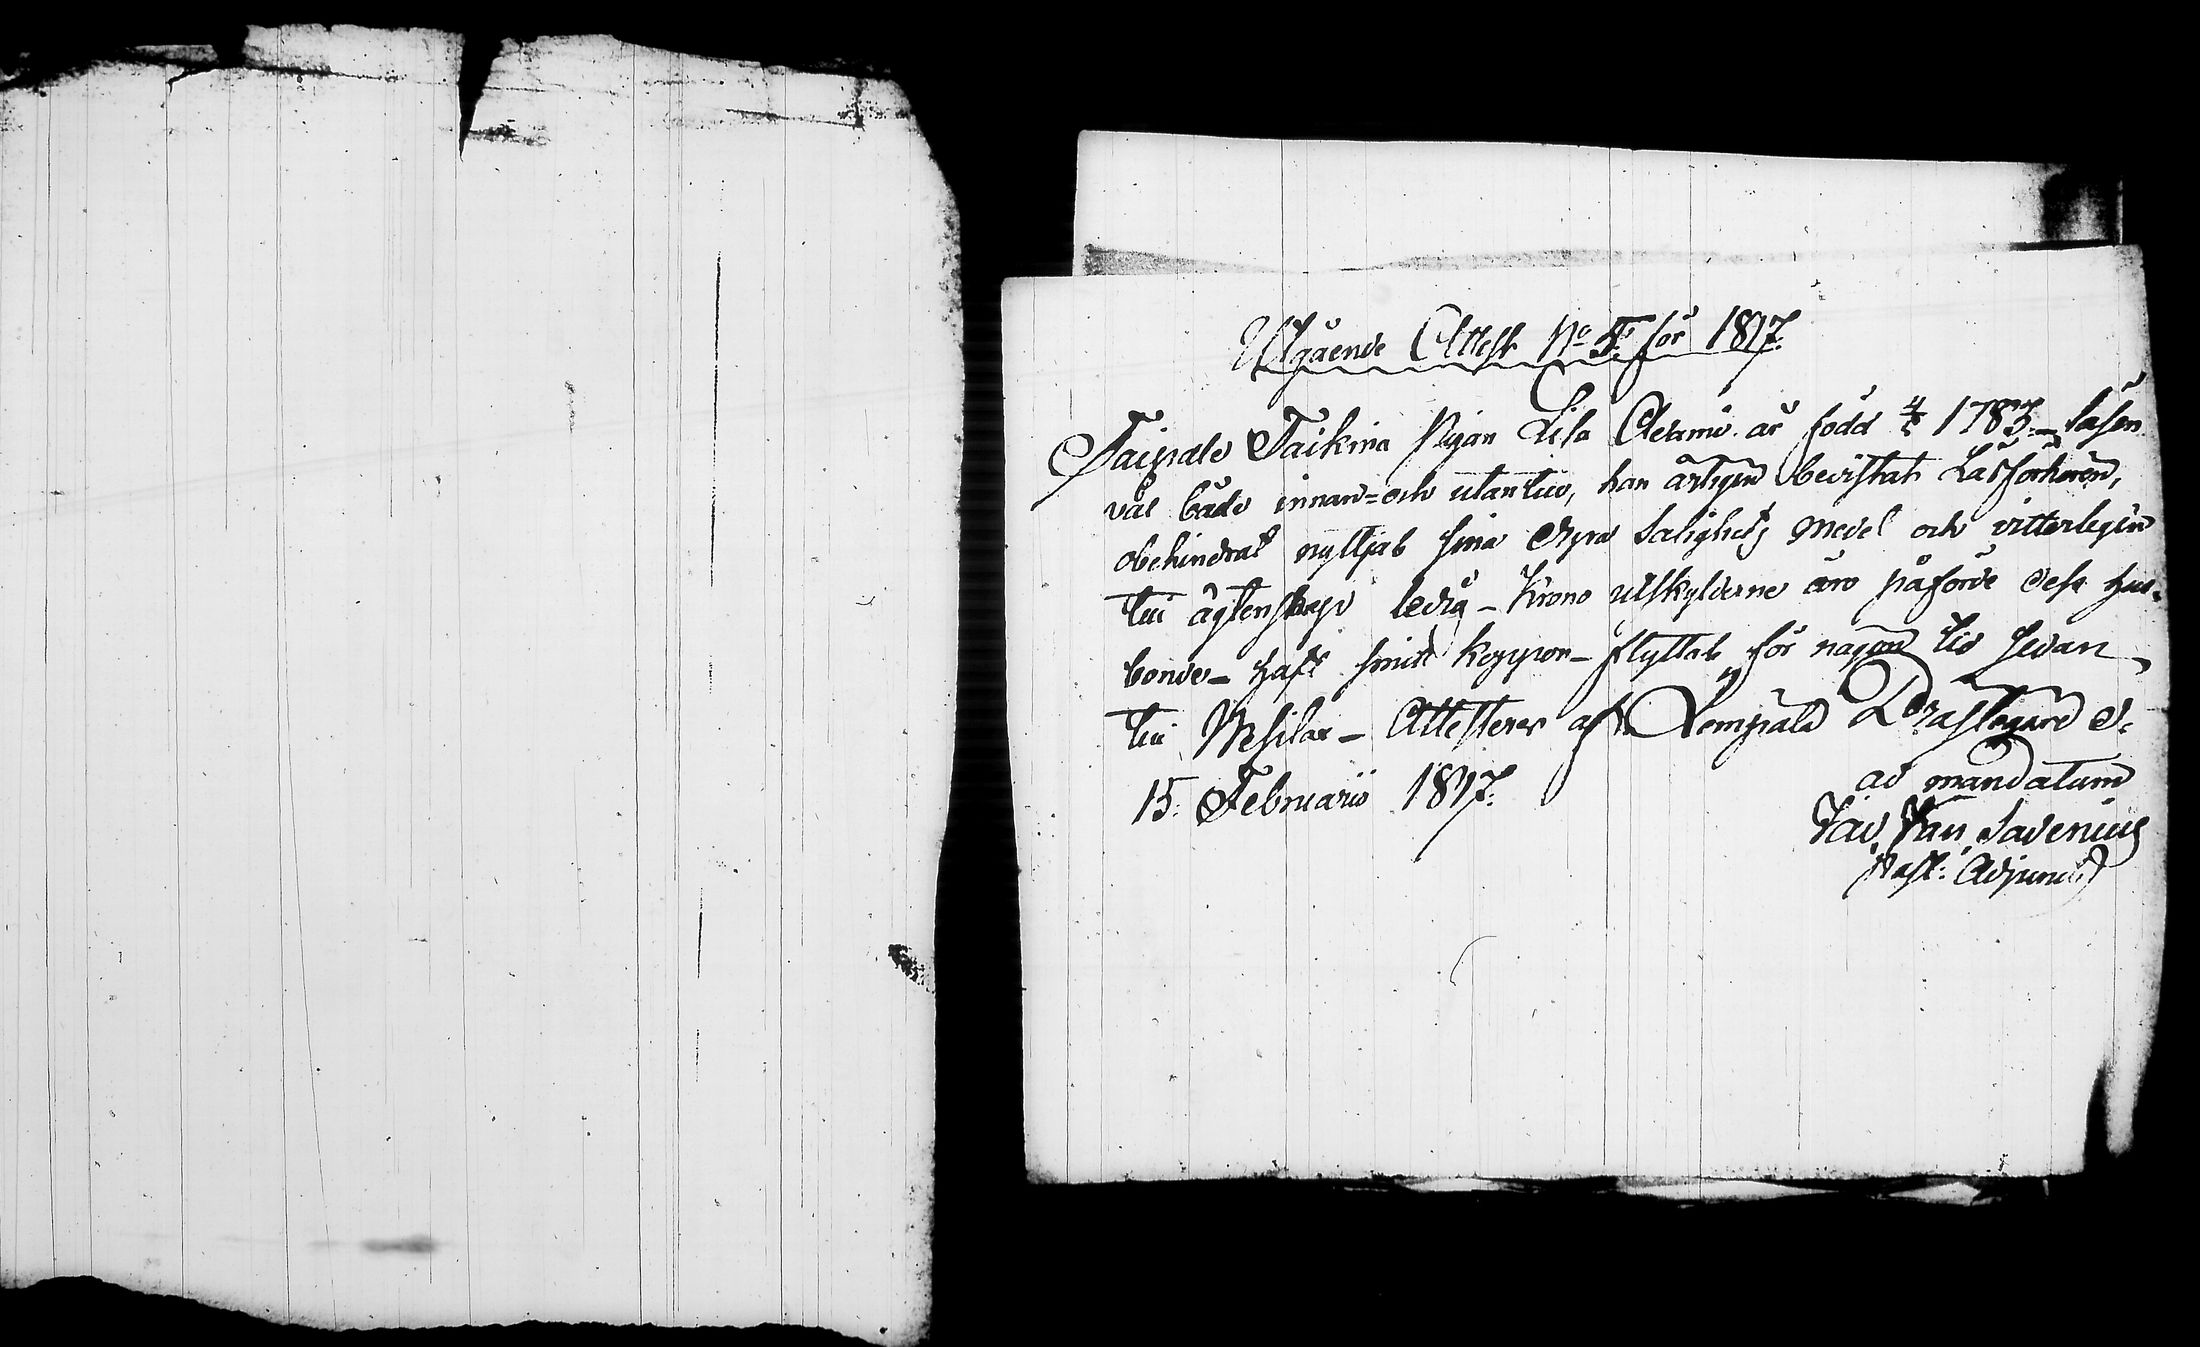 Utgående Attest No 5. för 1817.
Taipale Taikina Pigan Lisa Adamsd. är född 4/5 1783. - läsen
väl både innan= och utantill, han årligen bevistat Läsförhören,
obehindrat nyttjat sina dyra Salighets Medel och vitterligen
till ägtenskap ledig - Krono utskylderne äro påförde dess hus-
bonde - haft smitt koppor - flyttat för någon tid sedan
till Wesilax - Attesteras af Lempälä Prästegård d.
15. Februarii 1817.
ad mandatum
Dav. Joh. Savenius
Past: Adjunct